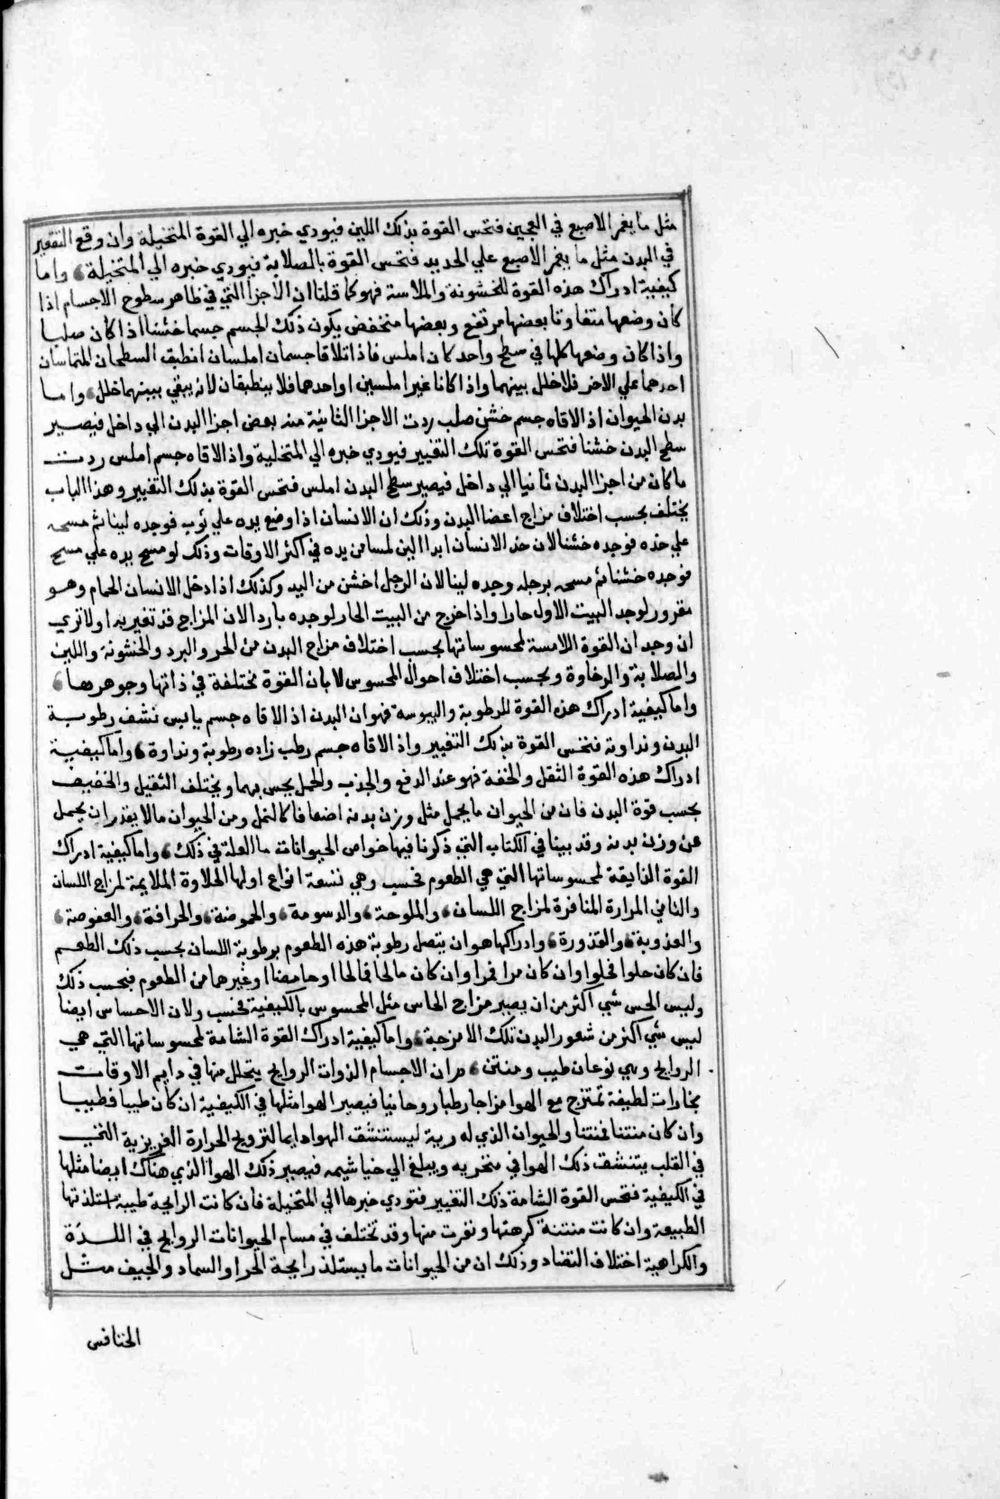 مثل ما يغمر الاصبع في العجين فتحس القوة بذلك اللين فيودي خبره الي القوة المتخيلة وان وقع التقعير
في البدن مثل ما يغمر الاصبع علي الحديد فتحس القوة بالصلابة فيودي خبره الي المتخيلة واما
كيفية ادراك هذه القوة للخشونة والملاسة فهو كما قلنا ان الاجزا التي في ظاهر سطوح الاجسام اذا
كان وضعها متفاوتا بعضها مرتفع وبعضها منخفض يكون ذلك الجسم جسما خشنا اذا كان صلبا
واذا كان وضعها كلها في سطح واحد كان املس فاذا تلاقا جسمان املسان انطبق السطحان المتماسان
احدهما علي الاخر فلا خلل بينهما واذا كانا غير املسين او احدهما فلا ينطبقان لانه يبقي بينهما خلل واما
بدن الحيوان اذ الاقاه جسم خشن صلب ردت الاجزا الثانية منه بعض اجزا البدن الي داخل فيصير
سطح البدن خشنا فتحس القوة تلك التغيير فيودي خبره الي المتخلية واذ الاقاه جسم املس ردت
ما كان من اجزا البدن ثانيا الي داخل فيصير سطح البدن املس فتحس القوة بذلك التغيير وهذا الباب
يختلف بحسب اختلاف مزاج اعضا البدن وذلك ان الانسان اذا وضع يده علي ثوب فوجده لينا ثم مسحه
علي خده فوجده خشنا لان خد الانسان ابدا الين لمسا من يده في اكثر الاوقات وذلك لو مسح يده علي مسح
فوجده خشنا ثم مسحه برجله وجده لينا لان الرجل اخشن من اليد وكذلك اذا دخل الانسان الحمام وهو
مقرور لوجد البيت الاول حارا واذا خرج من البيت الحار لوجده باردا لان المزاج قد تغير به اولا تري
ان وجدان القوة اللامسة لمحسوساتها بحسب اختلاف مزاج البدن من الحر والبرد والخشونة واللين
والصلابة والرخاوة وبحسب اختلاف احوال المحسوس لا بان القوة مختلفة في ذاتها وجوهرها
واما كيفية ادراك هذه القوة للرطوبة واليبوسة فهو ان البدن اذ الاقاه جسم يابس نشف رطوبة
البدن ونداوته فتحس القوة بذلك التغيير واذ الاقاه جسم رطب زاده رطوبة ونداوة واما كيفية
ادراك هذه القوة الثقل والخفة فهو عند الدفع والجذب والحمل يحس بهما ويختلف الثقيل والخفيف
بحسب قوة البدن فان من الحيوان ما يحمل مثل وزن بدنه اضعافا كالنمل ومن الحيوان ما لا يقدر ان يحمل
عن وزن بدنه وقد بينا في الكتاب التي ذكرنا فيها خواص الحيوانات ما العلة في ذلك واما كيفية ادراك
القوة الذايقة لمحسوساتها التي هي الطعوم فحسب وهي تسعة انواع اولها الحلاوة الملايمة لمزاج اللسان
والثاني المرارة المنافرة لمزاج اللسان والملوحة والدسومة والحموضة والحرافة والعفوصة
والعذوبة والقذورة وادراكها هو ان يتصل رطوبة هذه الطعوم برطوبة اللسان بحسب ذلك الطعم
فان كان حلوا فحلوا وان كان مرا فمرا وان كان مالحا فمالحا او حامضا او غيرها من الطعوم فبحسب ذلك
وليس الحس شي اكثر من ان يصير مزاج الحاس مثل المحسوس بالكيفية فحسب ولان الاحساس ايضا
ليس شي اكثر من شعور البدن تلك الامزجة واما كيفية ادراك القوة الشامة لمحسوساتها التي هي
الروايح وهي نوعان طيب ومنتن ان الاجسام الذوات الروايح يتحلل منها في دايم الاوقات
بخارات لطيفة تمتزج مع الهوا مزاجا رطبا روحانيا فيصير الهوا مثلها في الكيفية ان كان طيبا فطيبا
وان كان منتنا فمنتنا والحيوان الذي له رية ليستنشق الهوا دايما لترويح الحرارة الغريزية التي
في القلب يتنشق ذلك الهوا في منخريه ويبلغ الي خياشيمه فيصير ذلك الهوا الذي هناك ايضا مثلها
في الكيفية فتحس القوة الشامة ذلك التغيير فتودي خبرها الي المتخيلة فان كانت الرايحة طيبة استلذتها
الطبيعة وان كانت منتنة كرهتها ونفرت منها وقد تختلف في مسام الحيوانات الروايح في اللذة
والكراهية اختلاف التضاد وذلك ان من الحيوانات ما يستلذ رايحة الخرا والسماد والجيف مثل
الخنافس